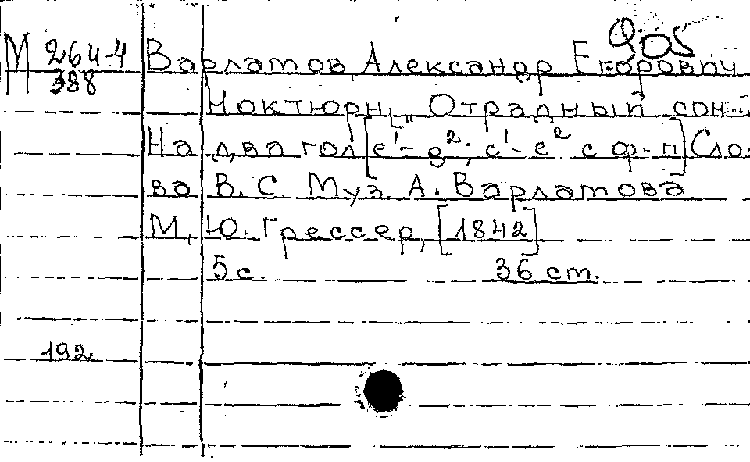 905
М 264-4 Варламов, Александр Егорович
388
Ноктюрн „Отрадный сон..."
На два гол [e¹-g²; c¹-e² с ф-п] Сло-
ва В. С. Муз. А. Варламова
М, Ю. Грессер, [1842]
5 с. 36 cm.
192